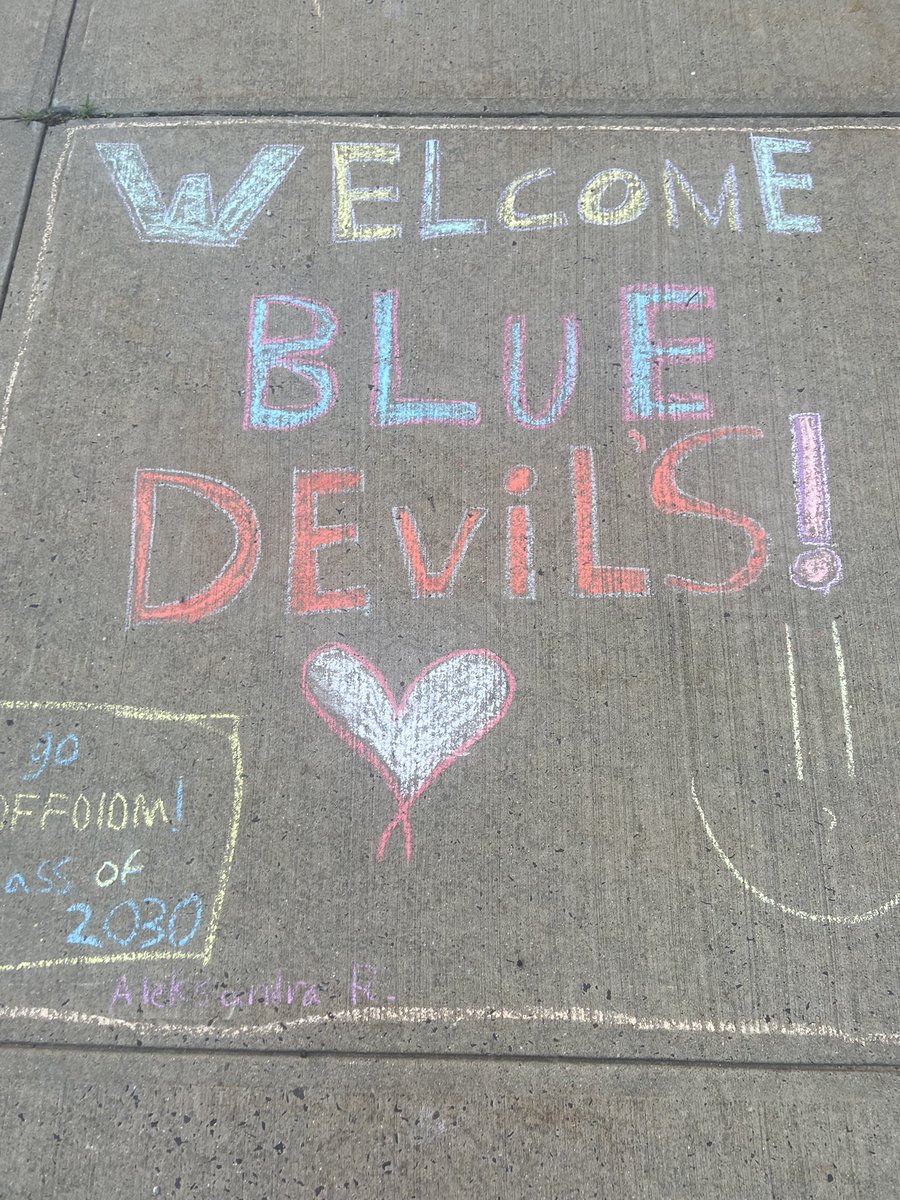 WELCOME
BLUE
DEViL'S!
go
OFFOIDM!
ass of
2030
Aleksandra R.